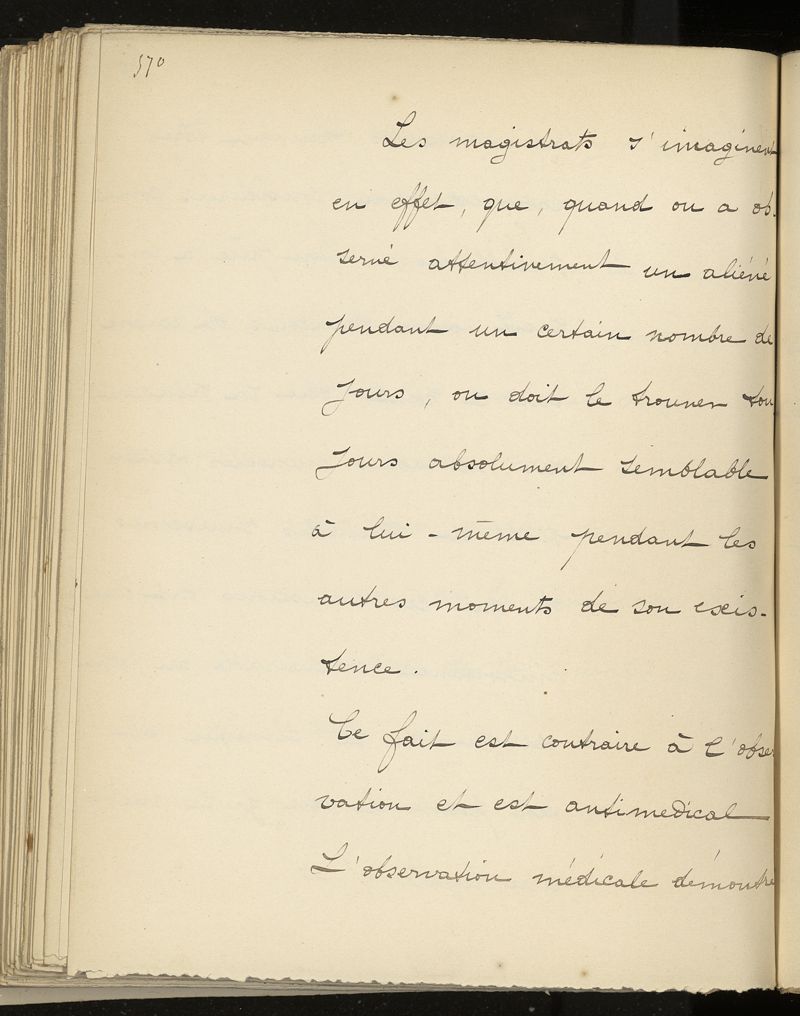 570
Les magistrats s'imaginent
en effet, que, quand on a ob-
servé attentivement un aliéné
pendant un certain nombre de
jours, on doit le trouver tou
jours absolument semblable
à lui-même pendant les
autres moments de son exis-
tence.
Ce fait est contraire à l'obser
vation et est antimedical
L'observation médicale démontre